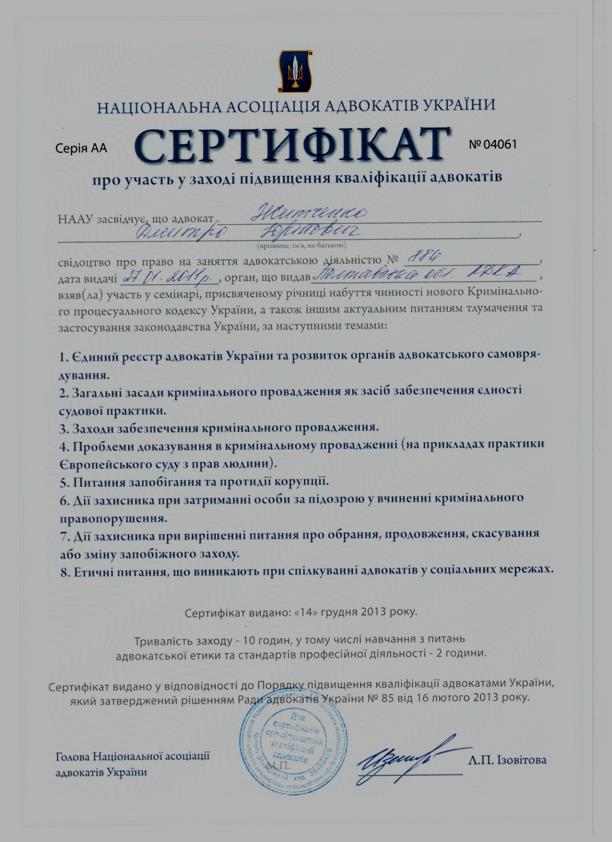 НАЦІОНАЛЬНА АСОЦІАЦІЯ АДВОКАТІВ УКРАЇНИ
Серія АА СЕРТИФІКАТ № 04061
про участь у заході підвищення кваліфікації адвокатів
НААУ засвідчує, що адвокат Житченко
Дмитро Юрійович,
(прізвище, ім'я, по батькові)
свідоцтво про право на заняття адвокатською діяльністю № 884,
дата видачі 27.01.2011р., орган, що видав Полтавська обл. КДКА,
взяв(ла) участь у семінарі, присвяченому річниці набуття чинності нового Криміналь-
ного процесуального кодексу України, а також іншим актуальним питанням тлумачення та
застосування законодавства України, за наступними темами:
1. Єдиний реєстр адвокатів України та розвиток органів адвокатського самовря-
дування.
2. Загальні засади кримінального провадження як засіб забезпечення єдності
судової практики.
3. Заходи забезпечення кримінального провадження.
4. Проблеми доказування в кримінальному провадженні (на прикладах практики
Європейського суду з прав людини).
5. Питання запобігання та протидії корупції.
6. Дії захисника при затриманні особи за підозрою у вчиненні кримінального
правопорушення.
7. Дії захисника при вирішенні питання про обрання, продовження, скасування
або зміну запобіжного заходу.
8. Етичні питання, що виникають при спілкуванні адвокатів у соціальних мережах.
Сертифікат видано: «14» грудня 2013 року.
Тривалість заходу - 10 годин, у тому числі навчання з питань
адвокатської етики та стандартів професійної діяльності - 2 години.
Сертифікат видано у відповідності до Порядку підвищення кваліфікації адвокатами України,
який затверджений рішенням Ради адвокатів України № 85 від 16 лютого 2013 року.
Для
сертифікатів
про підвищення
кваліфікації
адвокатів
М.П.
Голова Національної асоціації
адвокатів України
Л.П. Ізовітова